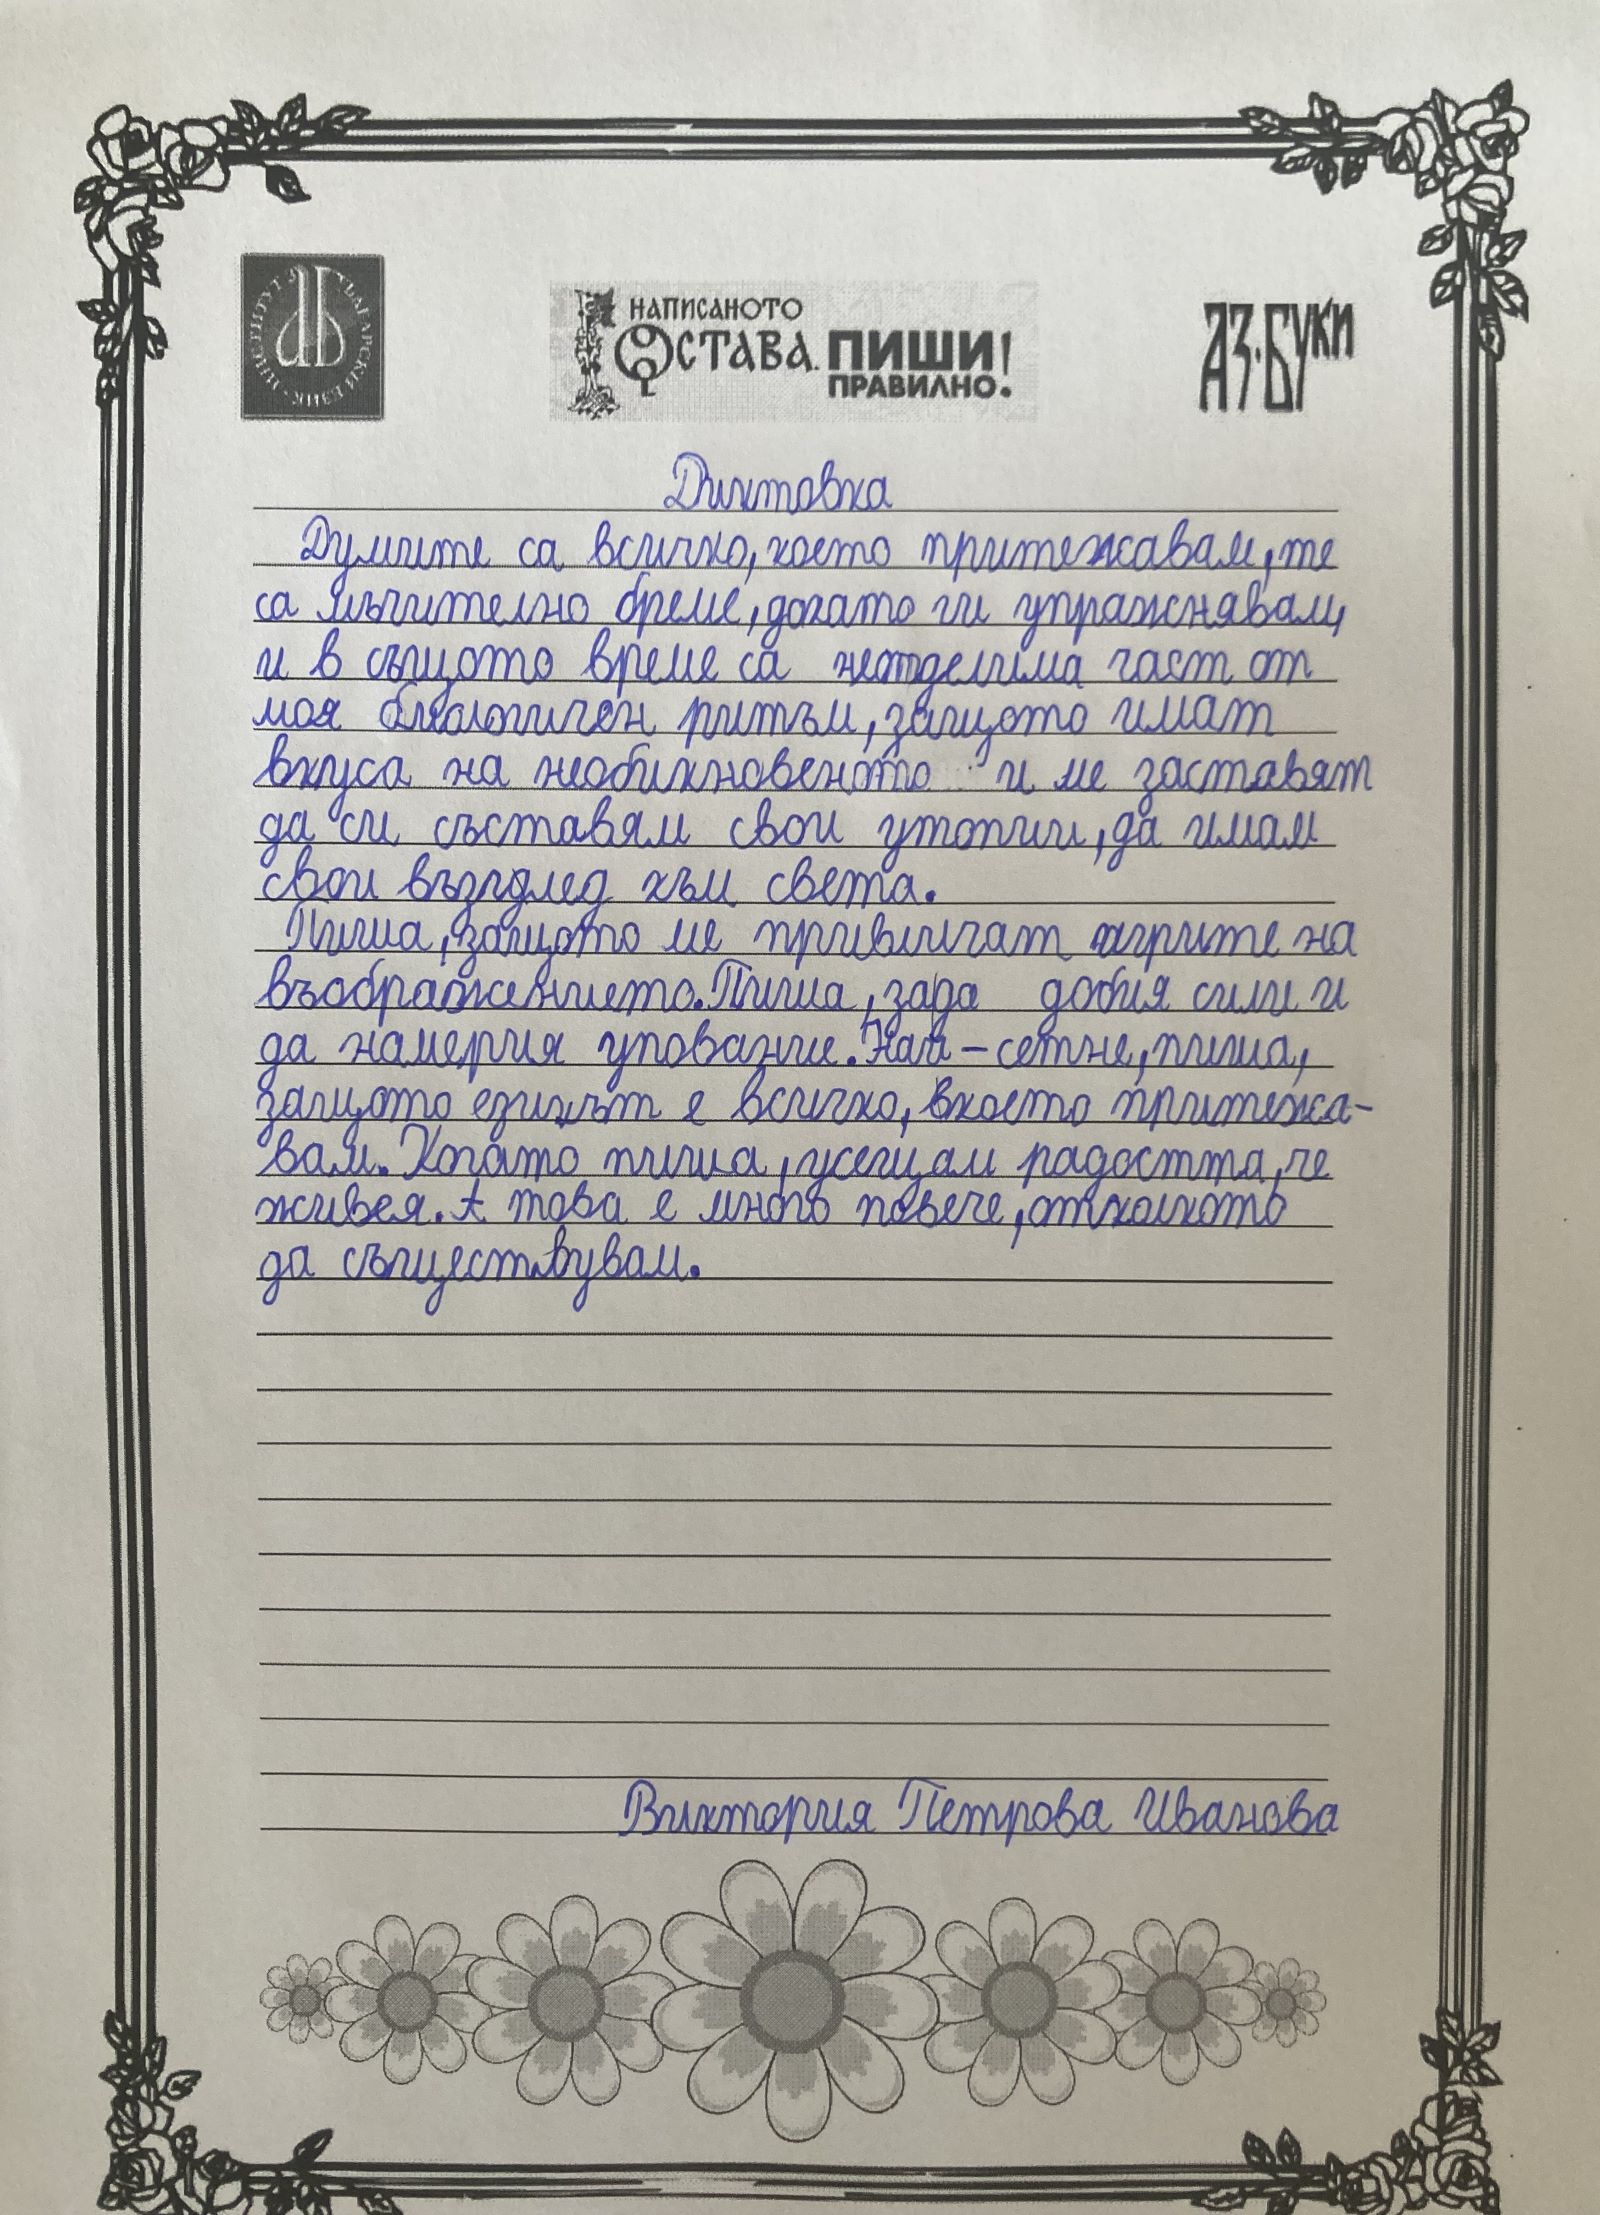 ИНСТИТУТ ЗА БЪЛГАРСКИ ЕЗИК
НАПИСАНОТО
ОСТАВА. ПИШИ
ПРАВИЛНО!
АЗ·БУКИ
Диктовка
Думите са всичко, което притежавам, те
са мъчително бреме, докато ги упражнявам,
и в същото време са неотделима част от
моя биологичен ритъм, защото имат
вкуса на необикновеното и ме заставят
да си съставям свои утопии, да имам
свои възглед към света.
Пиша, защото ме привличат игрите на
въображението. Пиша, зада добия сили и
да намеря упование. Най-сетне, пиша,
защото езикът е всичко, вкоето притежа-
вам. Когато пиша, усещам радостта, че
живея. А това е много повече, отколкото
да съществувам.
Виктория Петрова Иванова